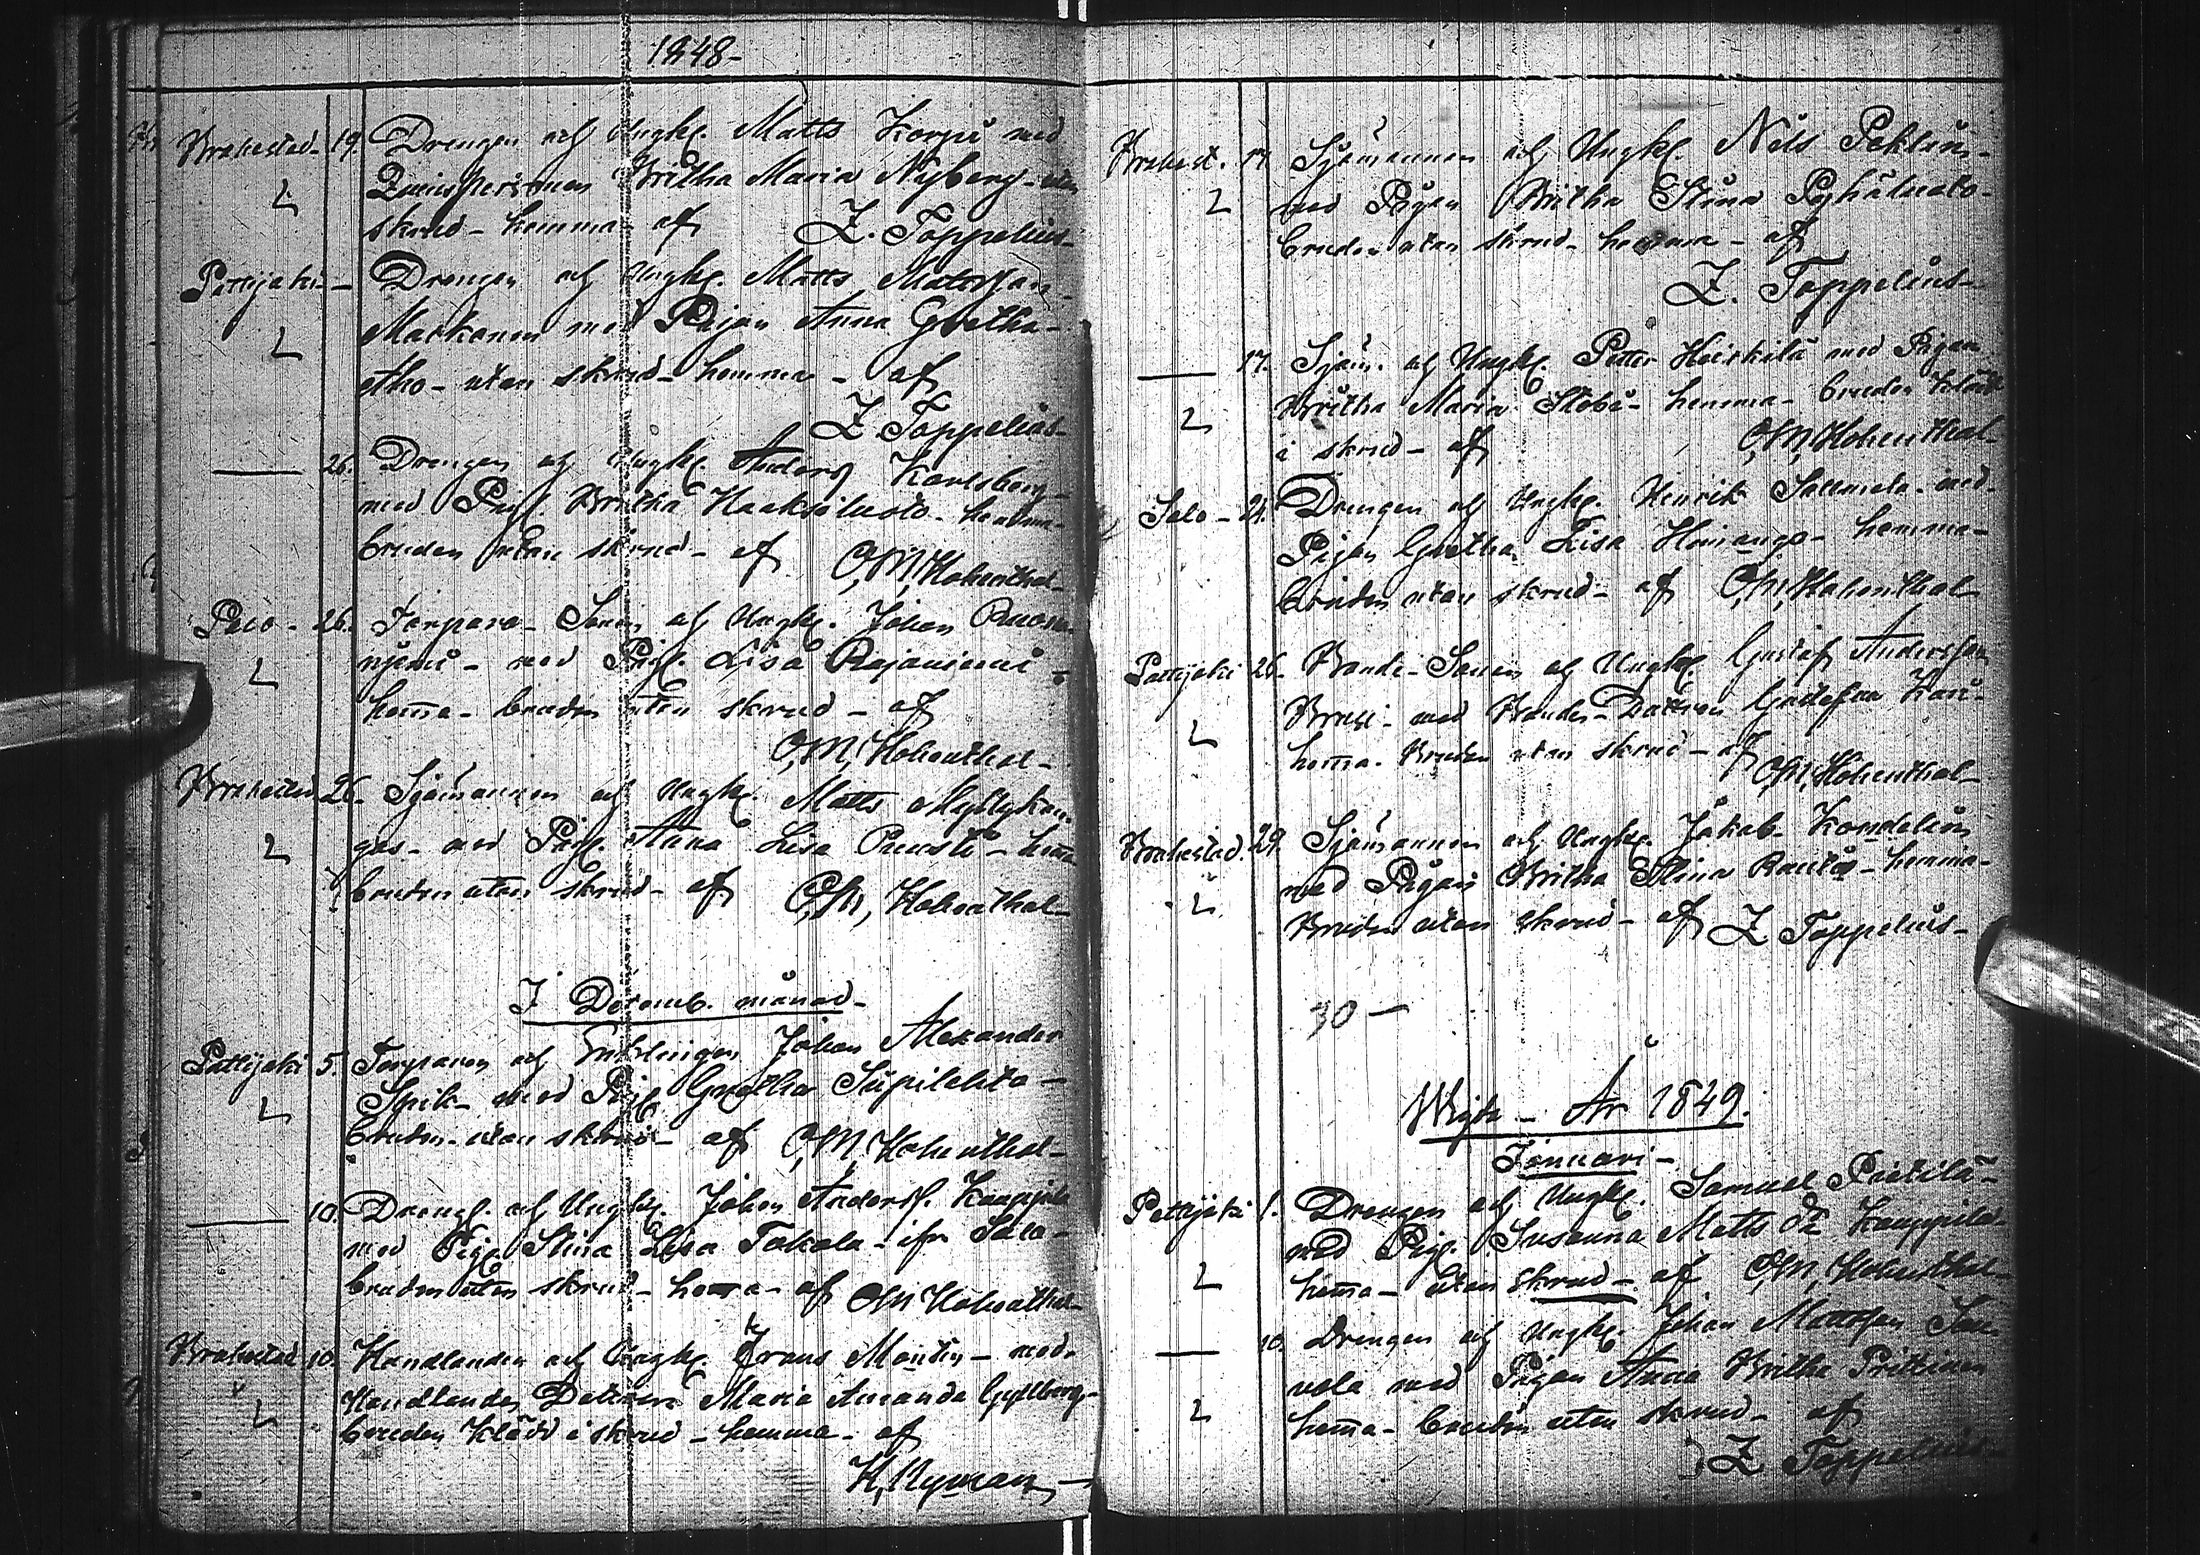 1848-
Brahestad- 19. Drengen och Ungk. Matts Korpi med
Qvinspersonen Britha Maria Nyberg - utan
skrud - hemma - af Z. Toppelius-
Pattijoki - Drengen och Ungk. Matts Mattsson
Maskonen med Pigan Anna Gretha
Aho - utan skrud - hemma - af
Z Toppelius-
26. Drengen och Ungk. Anders Karlsberg
med Pig. Britha Haaksiluoto - hemma-
bruden utan skrud - af C,M, Hohenthal-
Salo - 26. Torpare-Sonen och Ungk. Johan
niemi - med Pig. Lisa Rajaniemi -
hem̄a - bruden utan skrud - af
C,M, Hohenthal-
Brahestad 26. Sjömannen och Ungk. Matts Myllykan-
gas - med Pig. Anna Lisa - hem̄a
bruden utan skrud - af C,M, Hohenthal-
I Decemb. månad-
Pattijoki 5. Torparen och Enklingen Johan Alexander
Spik - med Pig. Gretha
bruden - utan skrud - af C,M, Hohenthal-
10. Dreng. och Ungk. Johan Anders. Kauppila
med Pig. Stina Lisa Tokola - ifr. Salo-
bruden utan skrud - hom̄a - af C M Hohenthal-
Brahestad 10. Handlanden och Ungk. Frans Montin - med
Handlande Dottren Maria Amanda Gyllberg-
bruden klädd i skrud - hemma - af
H, Nyman-
Brahest. 17. Sjömannen och Ungk. Nils
med Pigan Britha Stina Pyhäluoto-
bruden utan skrud - hemma - af
Z. Toppelius-
17. Sjöm. och Ungk. Petter Heikkilä med Pigan
Britha Maria - hemma - bruden klädd
i skrud - af C,M, Hohenthal-
Salo - 24. Drengen och Ungk. Henrik Salmela - med
Pigan Gretha Lisa - hemma-
bruden utan skrud - af C,M, Hohenthal-
Pattijoki 26. Bonde-Sonen och Ungk. Gustaf Andersson
med Bonde-Dottren
hem̄a - Bruden utan skrud - af C,M, Hohenthal-
Brahestad. 29. Sjömannen och Ungk. Jakob
med Pigan Britha Stina Rautio - hemma-
Bruden utan skrud - af Z Toppelius-
30 -
Wigde - År 1849.
Januari -
Pattijoki 1. Drengen och Ungk. Samuel Pietilä-
med Pig. Susanna Matts dr Kauppila-
hem̄a - utan skrud - af C,M, Hohenthal-
10. Drengen och Ungk. Johan Mattsson
med Pigan Anna Britha
hem̄a - bruden utan skrud - af
Z Toppelius-